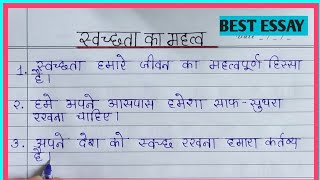 BEST ESSAY
स्वच्छता का महत्व
1. स्वच्छता हमारे जीवन का महत्वपूर्ण हिस्सा
है।
२. हमे अपने आसपास हमेशा साफ-सुथरा
रखना चाहिए।
3. अपने देश को स्वच्छ रखना हमारा कर्तव्य
है